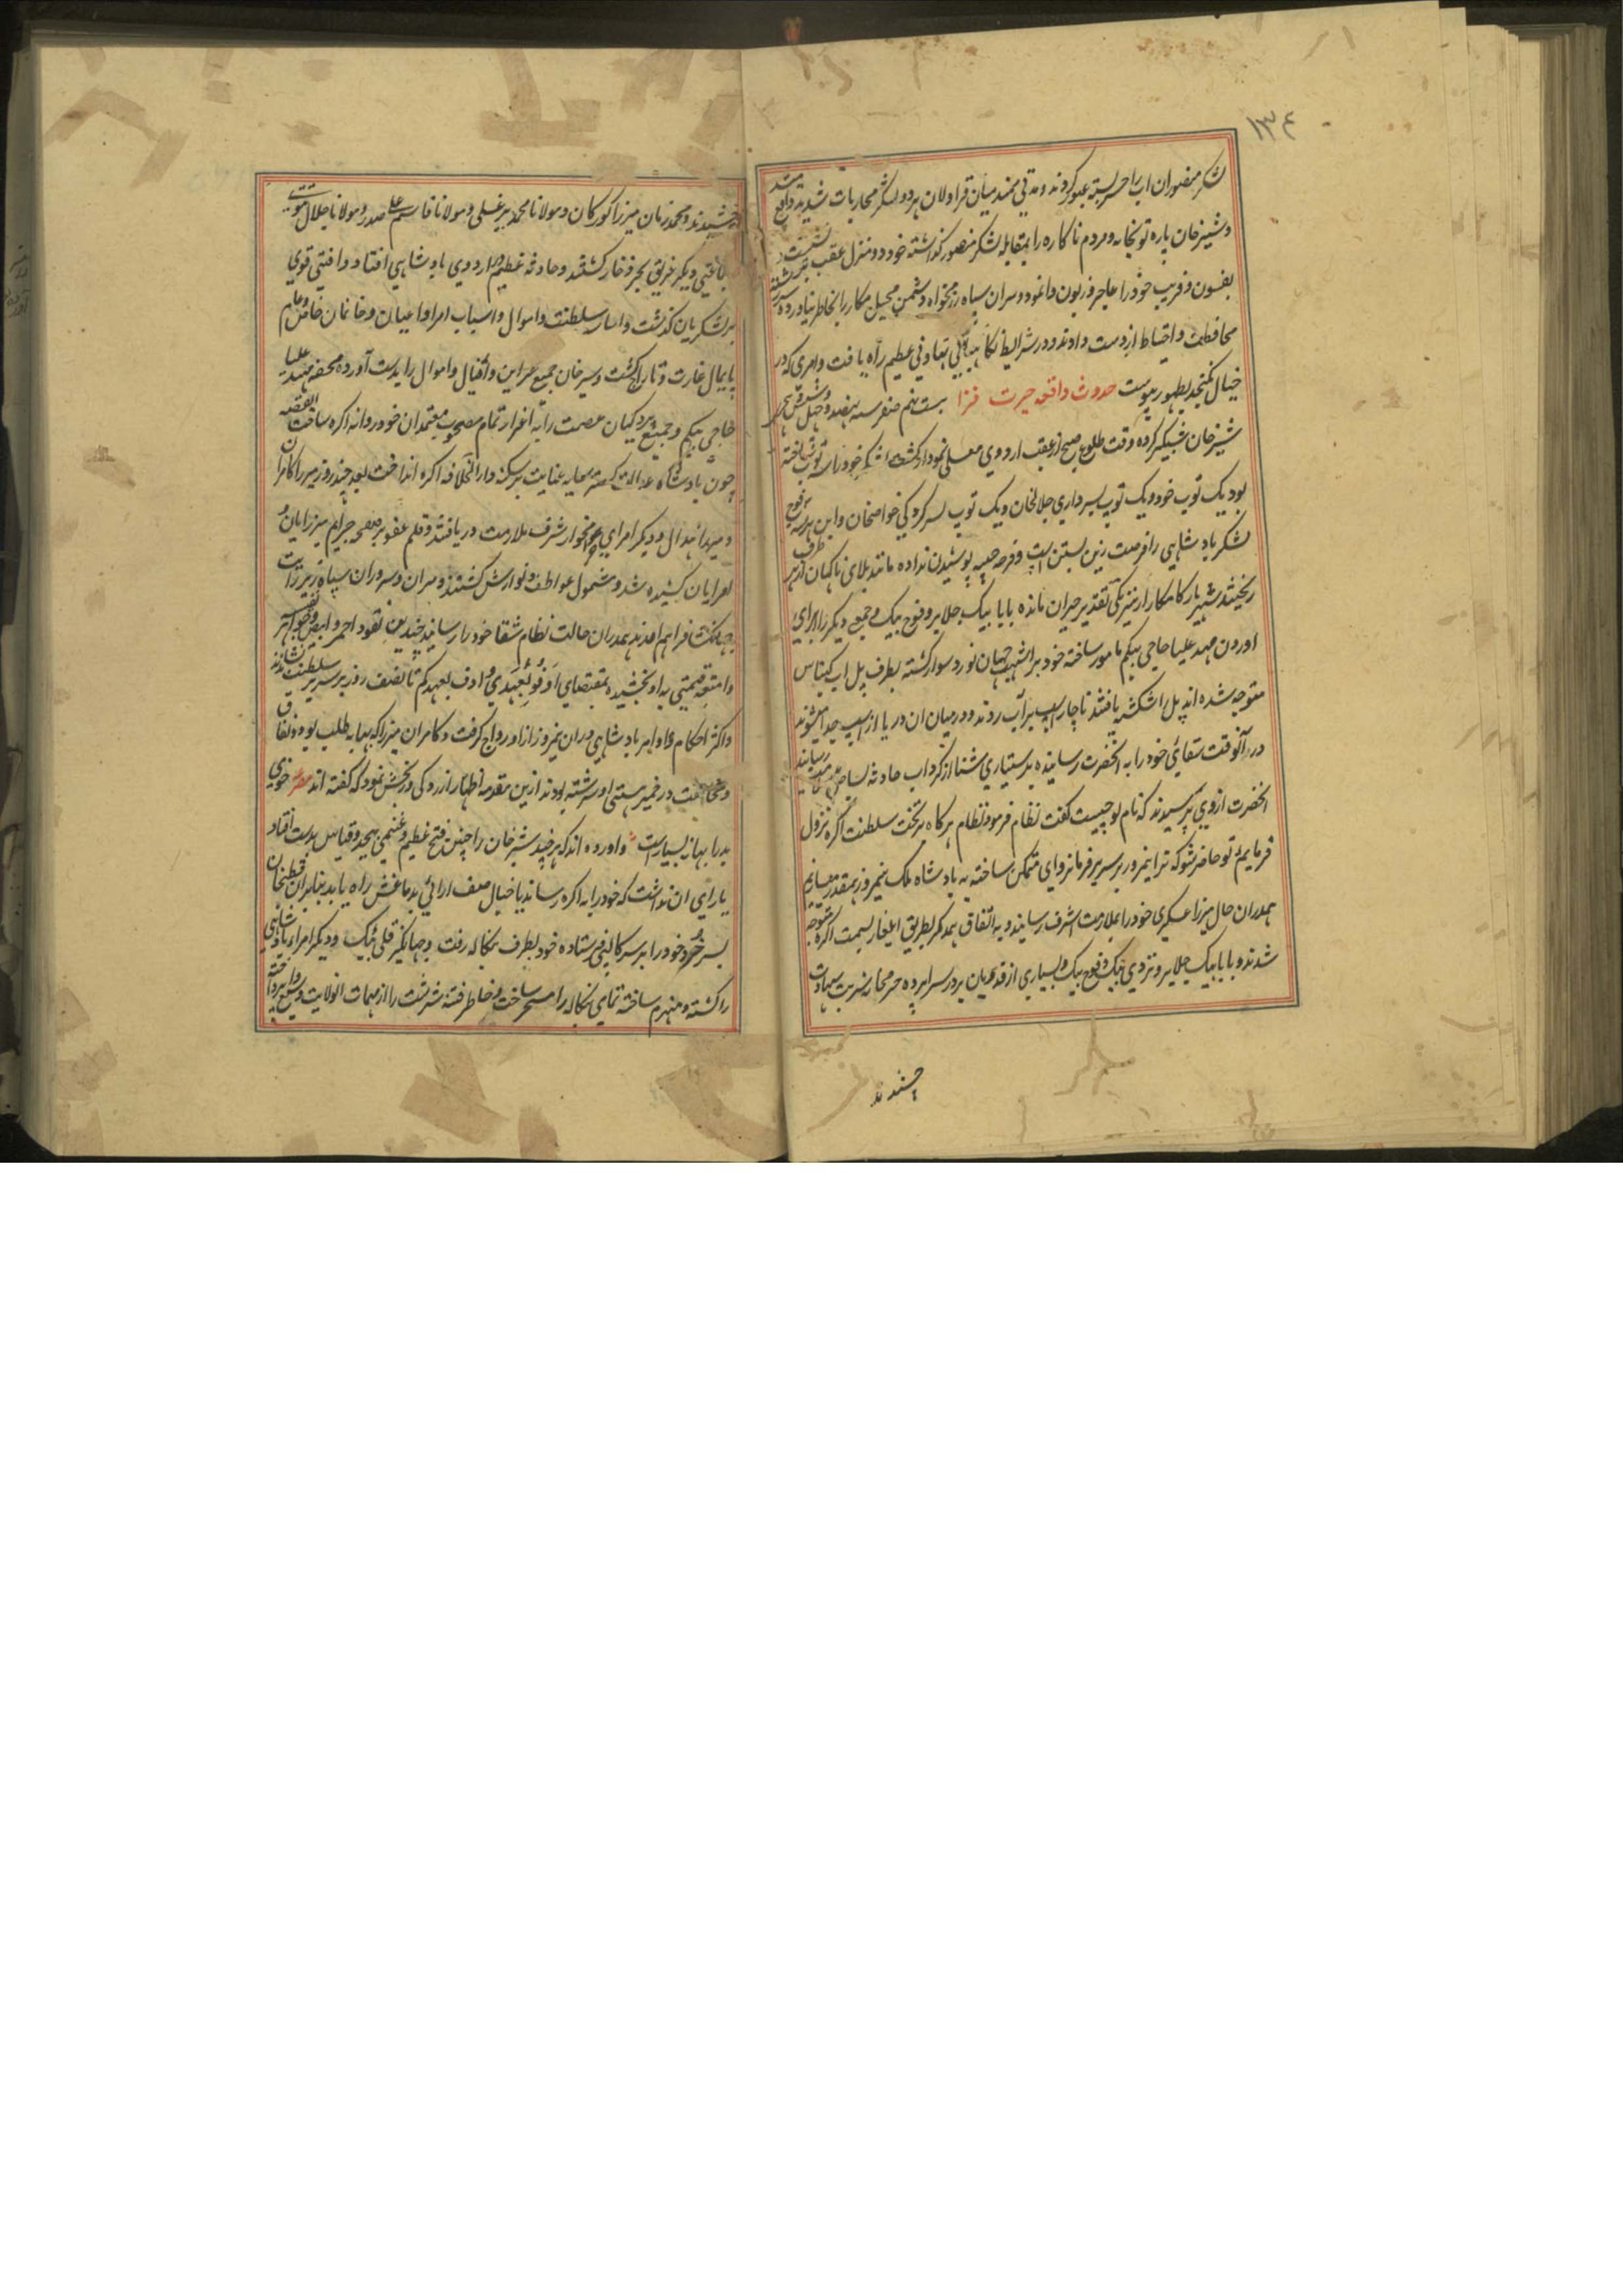 ۱۳۴
لشکر منصور ان اب را جسر بسته عبور کردند و مدتی ممتد میان قراولان هر دو لشکر محاربات شدید واقع شد
و شیر خان پاره توپخانه و مردم ناکاره را بمقابله لشکر منصور گذاشته خود دو منزل عقب نشست
بفسون و فریب خود را عاجز و زبون وانمود و سران سپاه رزمخواه دشمن محیل مکار را بخاطر نیاورده سر رشته
محافظت و احتیاط از دست دادند و در شرایط نگاهبانی تهاونی عظیم راه یافت و امری که در
خیال نگنجد بظهور پیوست حدوث واقعه حیرت فزا بیست نهم صفر سنه نهصد و چهل و شش هجری
شیر خان شبگیر کرده وقت طلوع صبح از عقب اردوی معلی نمودار گشت لشکر خود را سه توپ ساخته
بود یک توپ خود و یک توپ بسرداری جلالخان و یک توپ بسرکردگی خواصخان و این هر سه فوج
لشکر بادشاهی را فرصت زین بستن اسپ و فرصه جیبه پوشیدن نداده مانند بلای ناگهان از هر طرف
ریختند شهریار کامکار از نیرنگی تقدیر حیران مانده بابا بیک جلایر و قوج بیک و جمعی دیگر را برای
اوردن مهد علیا حاجی بیگم مامور ساخته خود بر اشهب جهان نورد سوار گشته بطرف پل اب گنگ
متوجه شده اند پل را شکسته یافتند ناچار اسپ بر آب روند و در میان ان دریا از اسپ جدا میشوند
در آنوقت سقائی خود را به آنحضرت رسانیده بدستیاری شنا از گرداب حادثه بساحل میرسانند
انحضرت ازوی پرسیدند که نام تو چیست گفت نظام فرمودند نظام هرگاه بر تخت سلطنت اگره نزول
فرمایم تو حاضر شو که ترا نیمروز بر سریر فرمانروای متمکن ساخته به بادشاه ملک نیمروز همقدر میسازیم
همدران حال میرزا عسکری خود را بملازمت اشرف رسانید و به اتفاق همدگر بطریق ایلغار بسمت اگره متوجه
شدند و بابا بیک جلایر و تردی بیک و قوج بیک و بسیاری از فدویان بر در سراپرده حرم محاربه شربت شهادت
چشیدند
چشیدند و محمد زمان میرزا کورکان و مولانا محمد پیرعلی و مولانا قاسم علی صدر و مولانا جلال تتوی
با جمعی دیگر غریق بحر ذخار گشتند و حادثه عظیم در اردوی بادشاهی افتاد و افتی قوی
بر لشکریان گذشت و اساس سلطنت و اموال و اسباب امرا و اعیان و خانمان خاص و عام
پایمال غارت و تاراج گشت و شیر خان جمیع خزاین و اثقال و اموال را بدست آورده محفه مهد علیا
حاجی بیگم و جمیع پردگیان عصمت را به اعزاز تمام مصحوب معتمدان خود روانه اگره ساخت القصه
چون بادشاه عدالت گستر سایه عنایت بر سکنه دار الخلافه اگره انداخت بعد چند روز میرزا کامران
و میرزا هندال و دیگر امرای بشرف ملازمت دریافتند و قلم عفو بر صفحه جرایم میرزایان و
امرایان کشیده شد و مشمول عواطف و نوازش گشتند و سران و سروران سپاه زیر رایت
جهانگشا فراهم امدند همدران حالت نظام سقا خود را رسانید چندین نقود احمر و ابیض و جواهر
و امتعه قیمتی به او بخشیده بمقتضای اوفوا بعهدی اوف بعهدکم تا نصف روز بر سریر سلطنت نشاندند
و اکثر احکام و اوامر بادشاهی دران نیمروز ازو رواج گرفت و کامران میرزا که بهانه طلب بود و نفاق
و مخالفت در خمیر هستی او سرشته بودند ازین مقدمه اظهار ازردگی و رنجش نمود که گفته اند مصرعه خوی
بد را بهانه بسیار است و اورده اند که هر چند شیر خان را چنین فتح عظیم و غنیمی بیحد و قیاس بدست افتاد
یارای ان نداشت که خود را به اگره رساند یا خیال صف ارائی بدماغش راه یابد بنابران قطبخان
پسر خورد خود را بر سر کالپی فرستاده خود بطرف بنگاله رفت و جهانگیر قلی بیک و دیگر امراء بادشاهی
را کشته و منهزم ساخته تمامی بنگاله را مسخر ساخت و خاطر فتنه سرشت را از مهمات انولایت